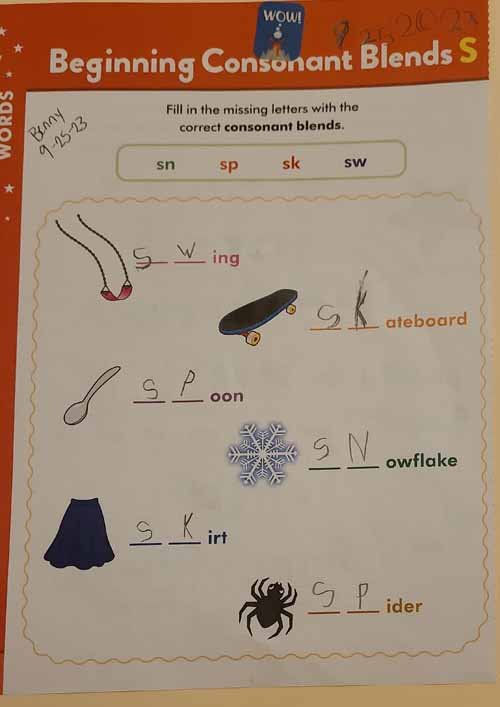 WOW!
Beginning Consonant Blends S
WORDS
Benny
9-25-23
Fill in the missing letters with the
correct consonant blends.
sn sp sk sw
S W ing
S K ateboard
S P oon
S N owflake
S K irt
S P ider